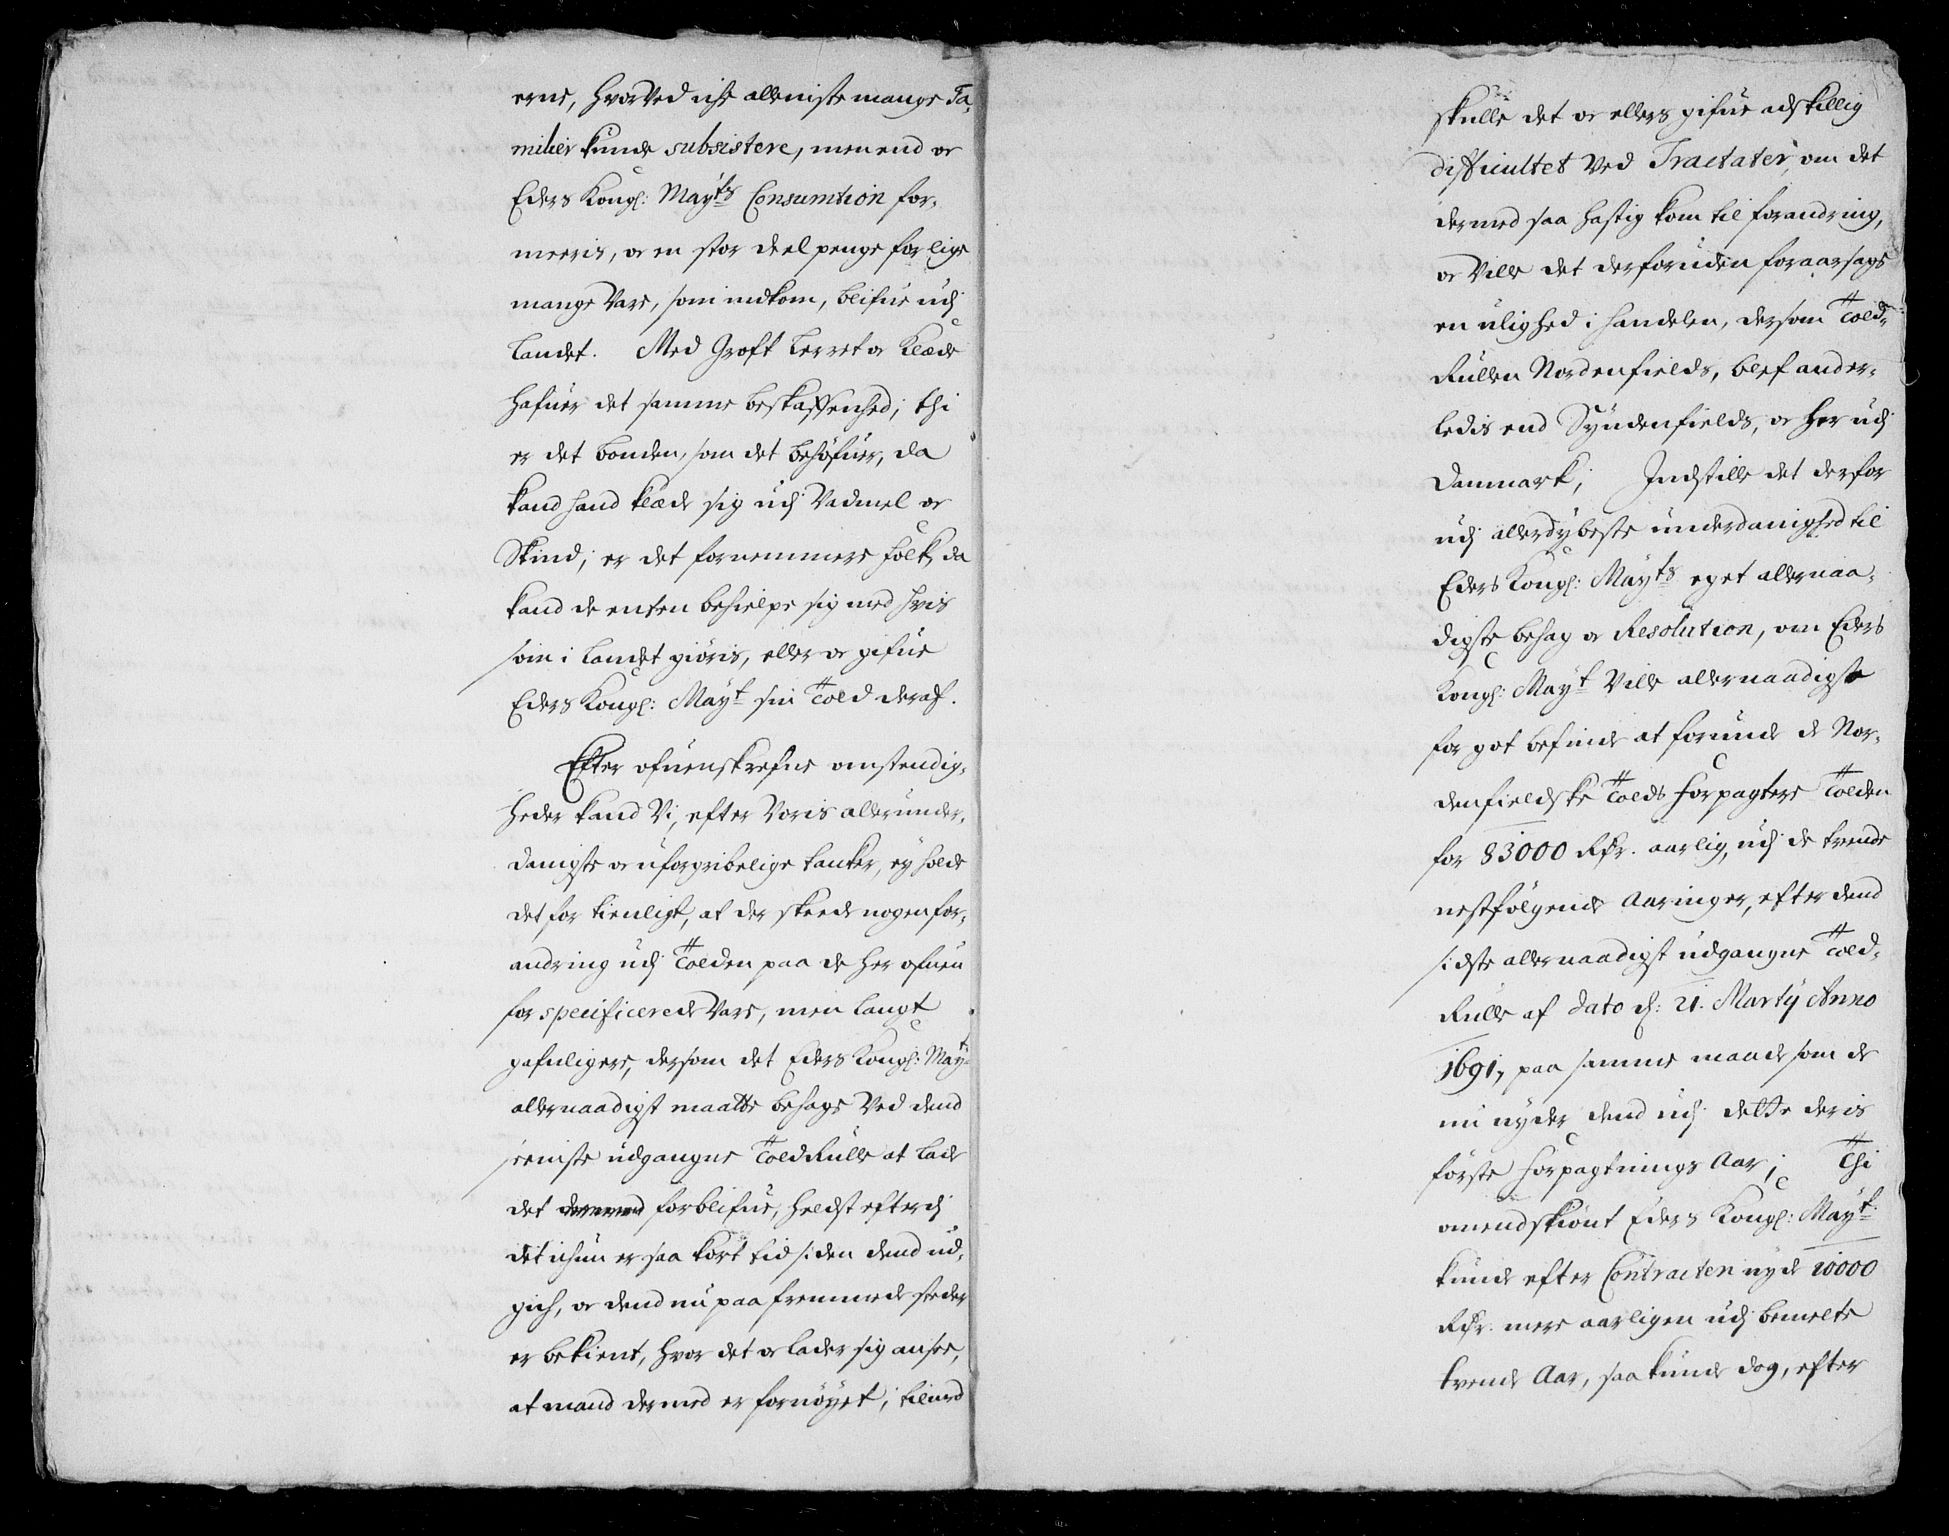 erne, hvorved iche alleniste mange Fa-
milier kunde subsistere, men end og
Eders Kongl: Mayts Consumtion for-
meeris, og en stor deel penge for lige
mange Vare, som indkom, blifue udj
Landet. Med Groft Lerret og Klæde
hafuer det samme beskaffenhed; thi
er det bonden, som det behöfuer, da
kand hand klæde sig udj Vadmel og
Skind; er det fornemmere folk, da
kand de enten behielpe sig med hvis
som i Landet giöris, eller og gifue
Eders Kongl: Mayt sin Told deraf.
Efter ofuenskrefne omstendig-
heder kand Vi, efter Voris allerunder-
danigste og uforgribelige tanker, ey holde
det for tienligt, at der skeede nogen for-
andring udj Tolden paa de her ofuen
for specificerede Vare, men langt
gafnligere, dersom det Eders Kongl: Mayt
allernaadigst maatte behage Ved dend
seeniste udgangne Told Rulle at lade
det dermed forblifue, heldst efterdj
det ichun er saa kort tid siden dend ud-
gich, og dend nu paa fremmede steder
er bekient, hvor det og lader sig ansee,
at mand dermed er fornöyet; tilmed
skulle det og ellers gifue adskillig
difficultet Ved Tractater, om det
dermed saa hastig kom til forandring,
og Ville det derforuden foraarsage
en ulighed i handelen, dersom Told-
Rullen Nordenfields, blef ander-
ledis end Syndenfields, og her udj
Danmark; Indstille det derfor
udj allerdybeste underdanighed til
Eders Kongl: Mayts eget allernaa-
digste behag og Resolution, om Eders
Kongl: Mayt Ville allernaadigste
for got befinde at forunde de Nor-
denfieldske Tolds Forpagtere Tolden
for 83000 Rdr. aarlig, udj de trende
nestfölgende Aaringer, efter dend
sidste allernaadigst udgangne Told-
Rulle af dato d: 21. Martij Anno
1691, paa samme maade som de
nu nyder dend udj dette deris
förste Forpagtnings Aar; Thi
omendskiönt Eders Kongl: Mayt.
kunde efter Contracten nyde 10000
Rdr. mere aarligen udj bemelte
trende Aar, saa kunde dog, efter